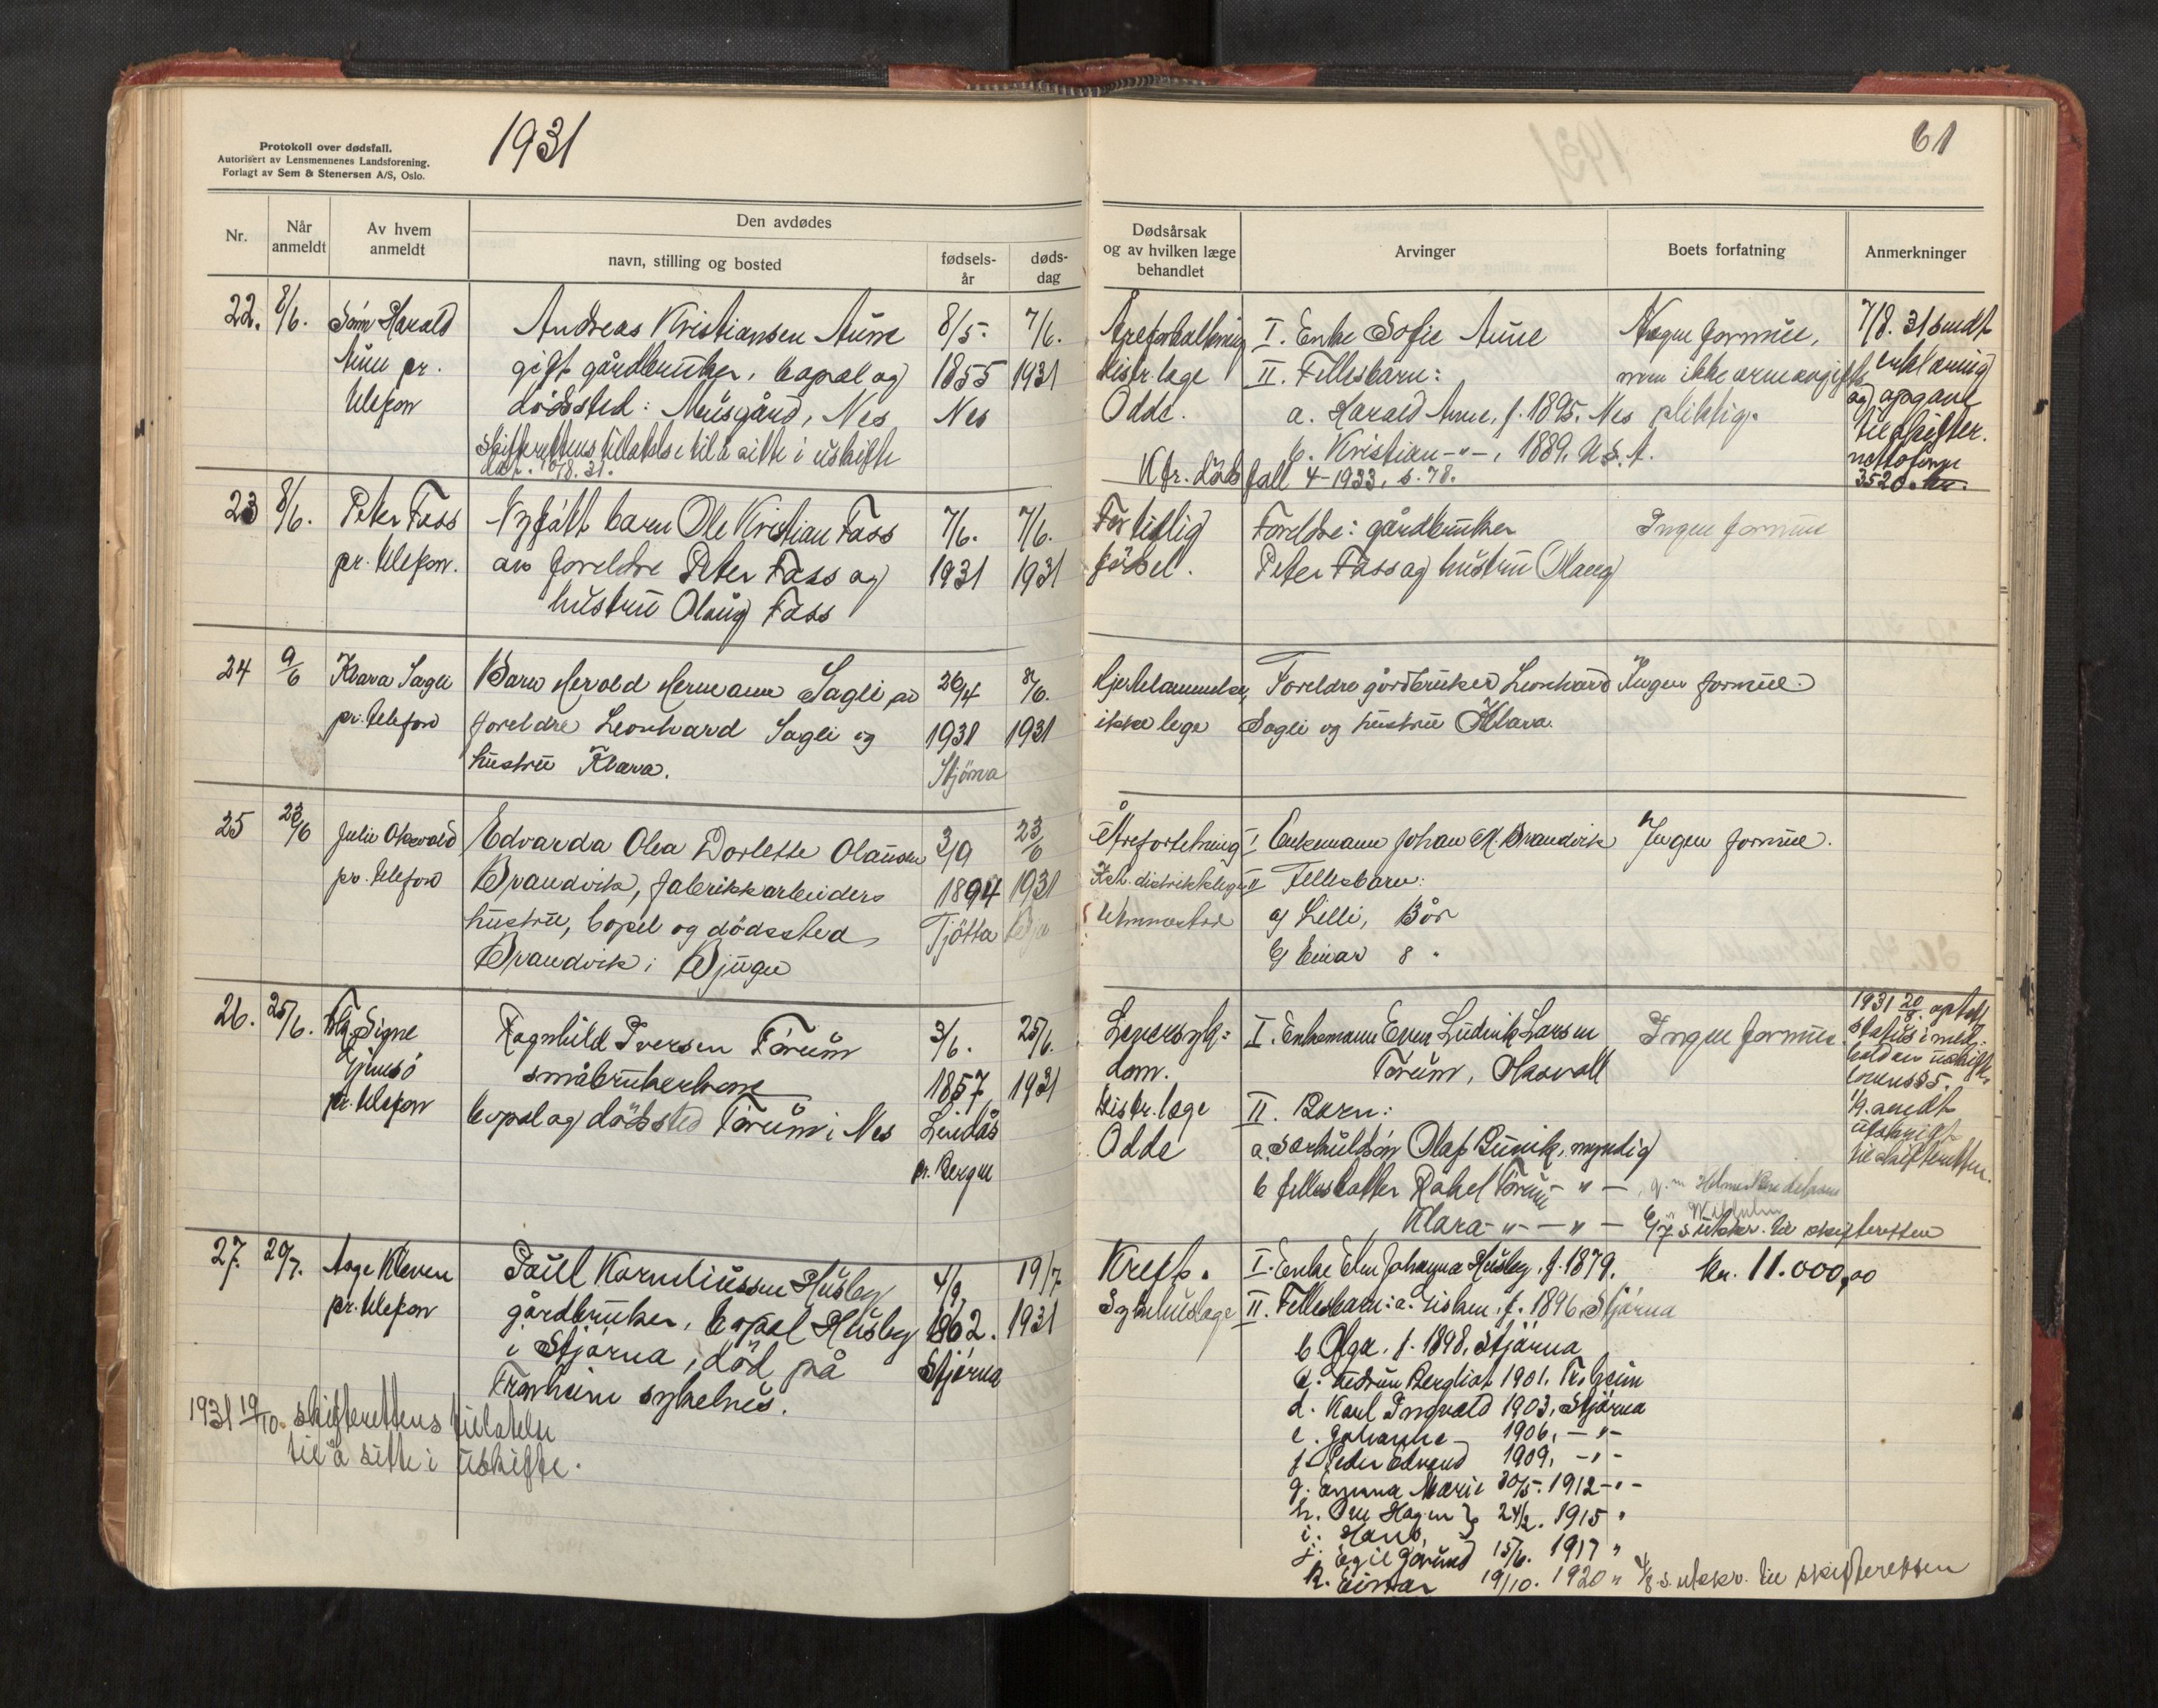 Protokoll over dødsfall.
Autorisert av Lensmennenes Landsforening.
Forlagt av Sem & Stenersen A/S, Oslo.
1931
61
Nr.
Når anmeldt
Av hvem anmeldt
Den avdødes
navn, stilling og bosted
fødsels-år
døds-dag
Dødsårsak og av hvilken læge behandlet
Arvinger
Boets forfatning
Anmerkninger
22. 8/6. Sönn Harald Andreas Kristiansen Aune 8/5. 7/6.
Aune pr. gift gårdbruker, bopæl og 1855 1931
telefon dödssted: Musgård, Nes Nes
Skifterettens tillatelse til å sitte i uskifte
dat. 10/8. 31.
Åreforkalkning I. Enke Sofie Aune Nogen formue,
distr. læge II. Fellesbarn: men ikke arveavgifts
Odde. a. Harald Aune, f. 1895. Nes pliktig.
b. Kristian -"-, 1889. U.S.A.
Kfr. dödsfall 4-1933, s. 78.
7/8. 31 sendt
erklæring
og opgave
til skifter.
nettoformue
3520 kr.
23 8/6. Peter Fass Nyfött barn Ole Kristian Fass 7/6. 7/6.
pr. telefon. av foreldre Peter Fass og 1931 1931
hustru Olaug Fass
For tidlig Foreldre: gårdbruker Ingen formue
födsel. Peter Fass og hustru Olaug
24 9/6 Klara Sagli Barn Herold Hermann Sagli av 26/4 8/6.
pr. telefon foreldre Leonhard Sagli og 1931 1931
hustru Klara. Stjörna
Hjertelammelse, Foreldre gårdbruker Leonhard Ingen formue.
ikke lege Sagli og hustru Klara.
25 23/6 Julie Oksvold Edvarda Olea Dorlette Olausen 3/9 23/6
pr. telefon Brandvik, fabrikkarbeiders 1894 1931
hustru, bopel og dödssted Tjötta
Brandvik i Bjugn
Åreforkalkning I Enkemann Johan M. Brandvik Ingen formue.
Fellesbarn:
a/ Lilli, 13 år
b/ Einar 8 "
26. 25/6. Signe Ragnhild Iversen Törum 3/6. 25/6.
småbrukerkone 1857 1931
pr. telefon bopel og dödssted Törum i Nes Lindås
pr. Bergen
Leversyk= I. Enkemann Even Ludvik Larsen Ingen formue.
dom. Törum, Oksvoll
Distr. læge II. Barn:
Odde a. Særkuldsön Olaf Bunik, myndig
b fellesdatter Rakel Törum - " -
Klara - " - - " -
s. utskr. til skifteretten
1931 20/8. optatt
status i med-
hold av uskifte-
lovens § 5.
1/9. sendt
utskrift
til skifteretten.
27. 20/7. Aage Kleven Paul Korneliussen Husby 4/9. 19/7
pr. telefon gårdbruker, bopel Husby 1862. 1931
i Stjørna, död på Stjørna
Tronheim sykehus.
1931 19/10. skifterettens tillatelse
til å sitte i uskifte.
Kreft. I. Enke Elen Johanna Husby, f. 1879. kr. 11.000,00
Sykehuslæge II. Fellesbarn: a. f. 1896 Stjørna
b Olga, f. 1898, Stjørna
c. Gudrun Bergliot 1901. Tr.heim
d. Karl Ingvald 1903, Stjørna
e. Johanne 1906, -"-
f. Peder Edvard 1909, -"-
g. Emma Marie 30/5. 1912 -"-
h. Ove Hagen } 24/2. 1915 "
i. Hans.
j. Egil Jörund 15/6. 1917 "
k. Einar 19/10. 1920 " 4/8 s. utskr. til skifteretten